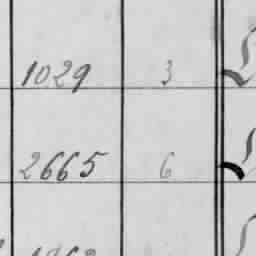 1029 3
2665 6